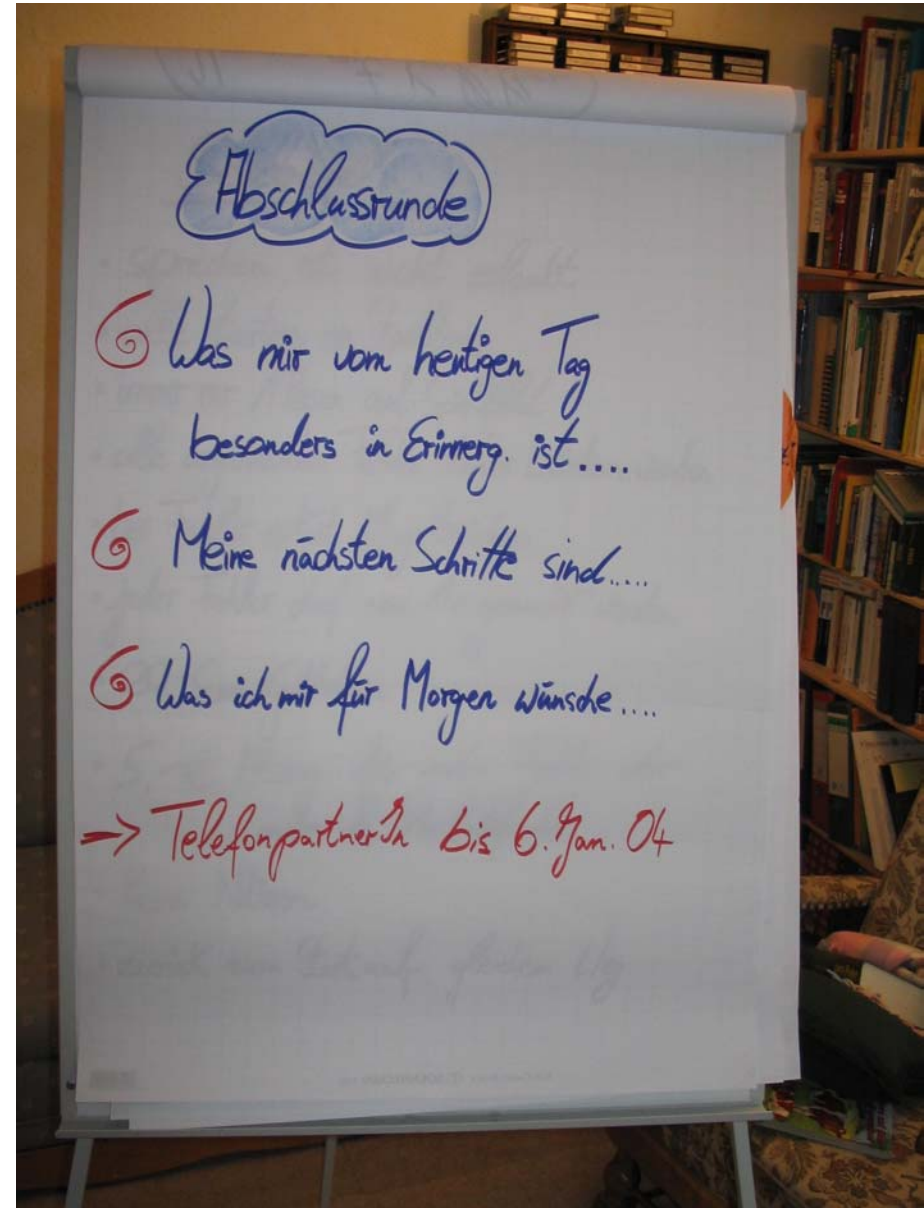 Abschlussrunde
Was mir vom heutigen Tag
besonders in Erinnerg. ist....
Meine nächsten Schritte sind.....
Was ich mir für Morgen wünsche....
=> TelefonpartnerIn bis 6. Jan. 04